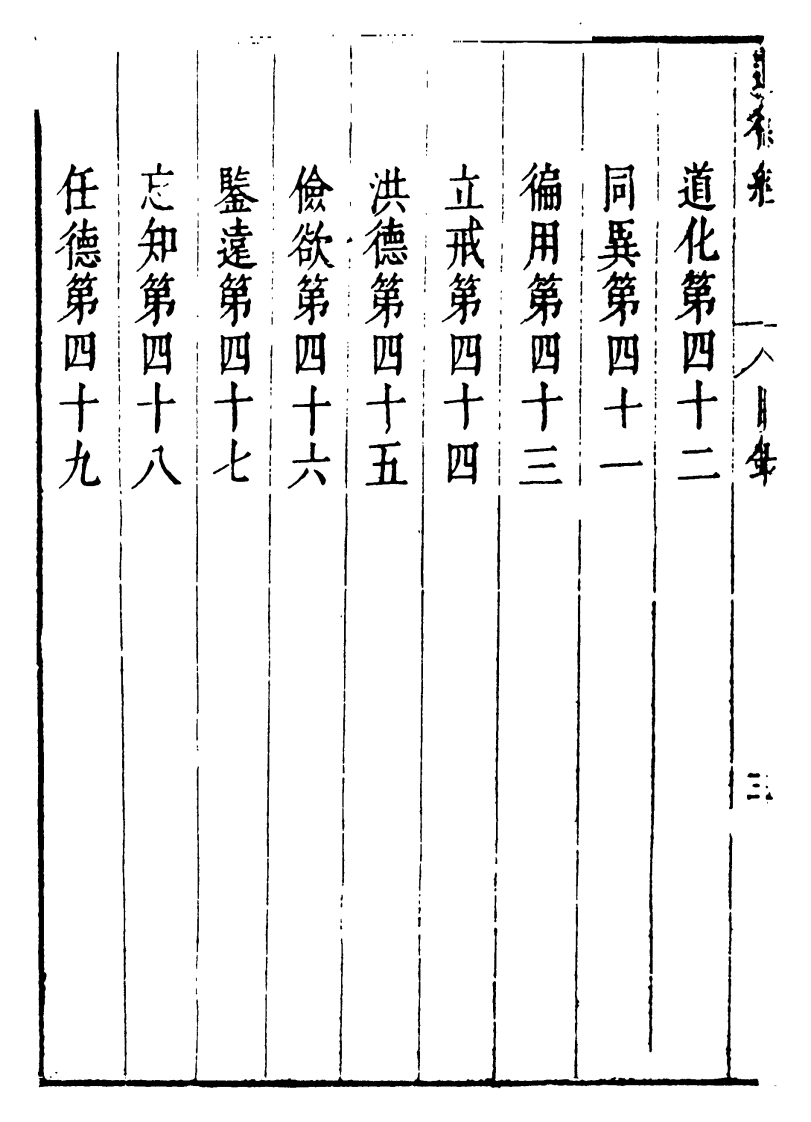 道化第四十二
同異第四十一
徧用第四十三
立戒第四十四
洪德第四十五
儉欲第四十六
鑒遠第四十七
忘知第四十八
任德第四十九